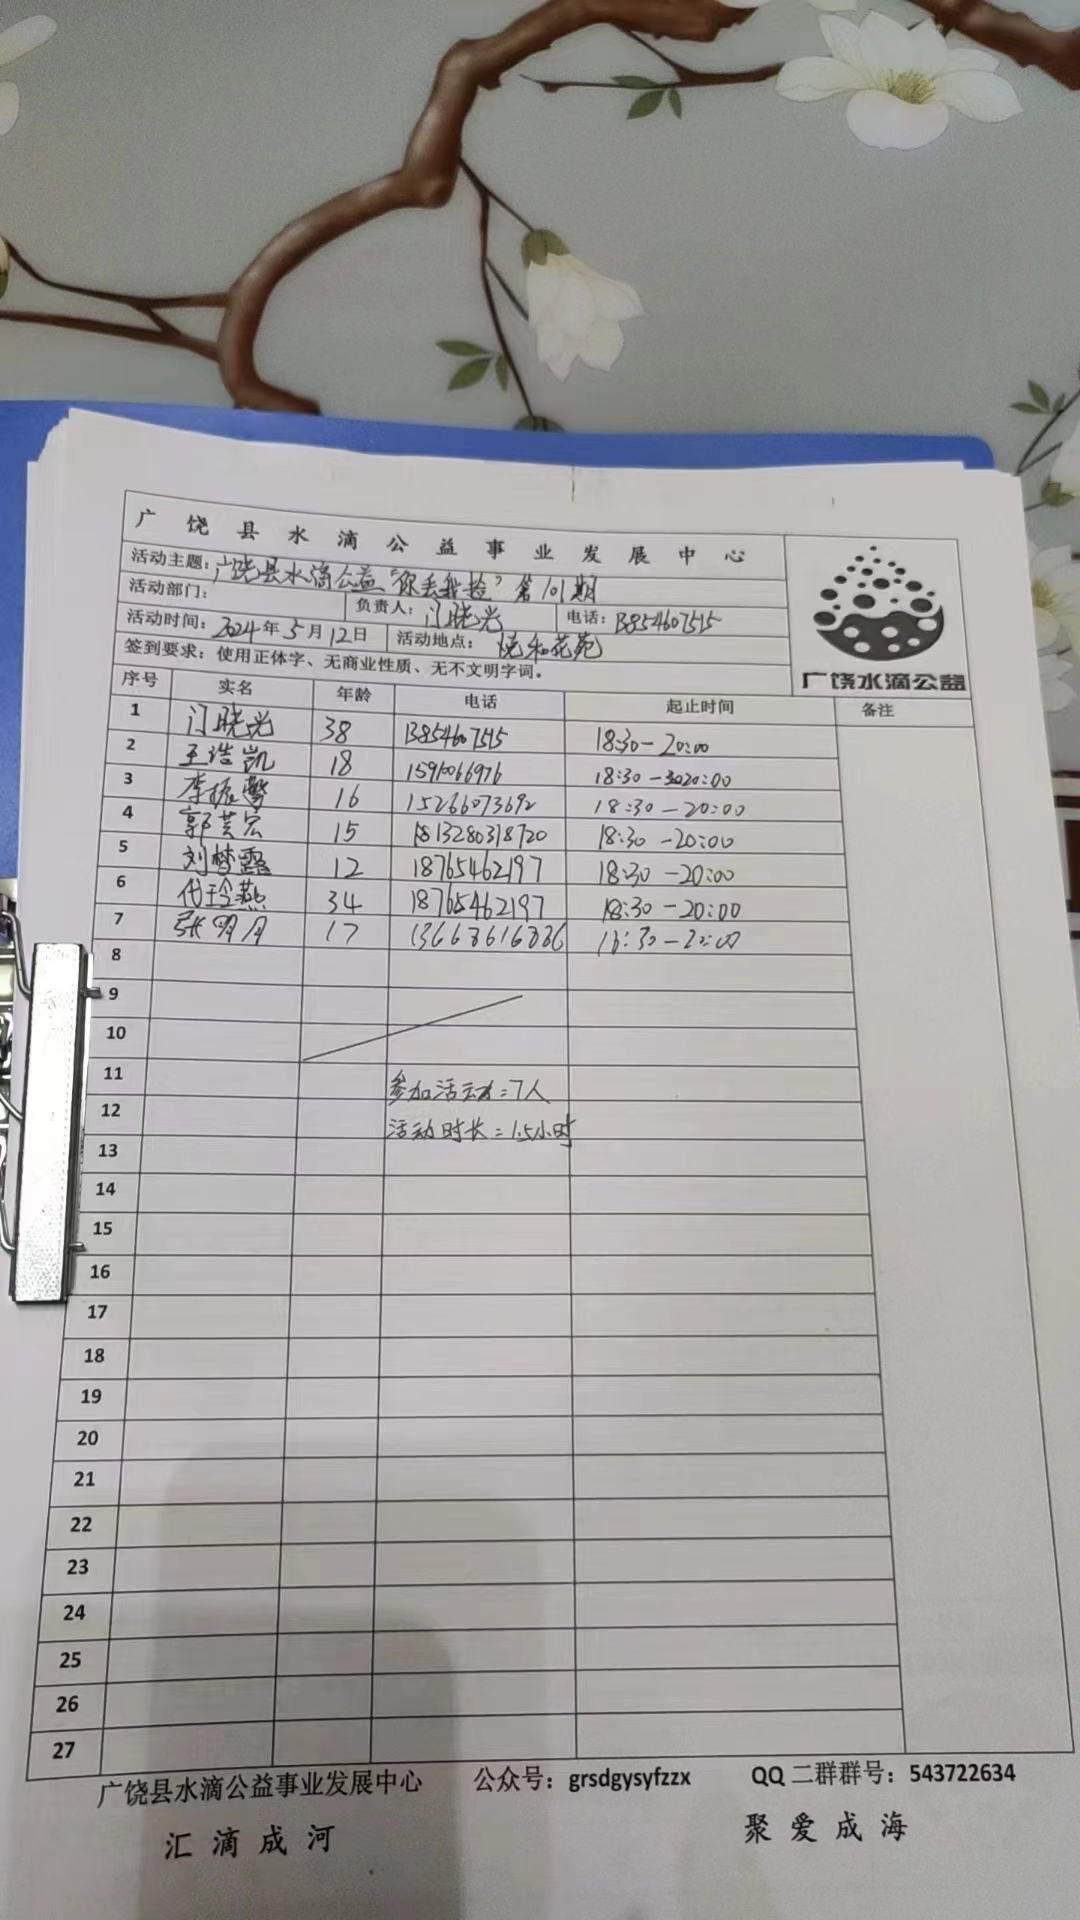 广饶县水滴公益事业发展中心
活动主题：广饶县水滴公益"你丢我捡"第101期
活动部门： 负责人：门晓光 电话：13854607515
活动时间：2024年5月12日 活动地点：悦和花苑
签到要求：使用正体字、无商业性质、无不文明字词。
广饶水滴公益
序号 实名 年龄 电话 起止时间 备注
1 门晓光 38 13854607515 18:30-20:00
2 王浩凯 18 1591066976 18:30-3020:00
3 李振 16 15266073692 18:30-20:00
4 郭芸宏 15 1813280318720 18:30-20:00
5 刘梦露 12 18765462197 18:30-20:00
6 代玲燕 34 18765462197 18:30-20:00
7 张明月 17 13668616886 18:30-20:00
8
9
10
11 参加活动：7人
12 活动时长：1.5小时
13
14
15
16
17
18
19
20
21
22
23
24
25
26
27
广饶县水滴公益事业发展中心 公众号：grsdgysyfzzx QQ二群群号：543722634
汇滴成河 聚爱成海